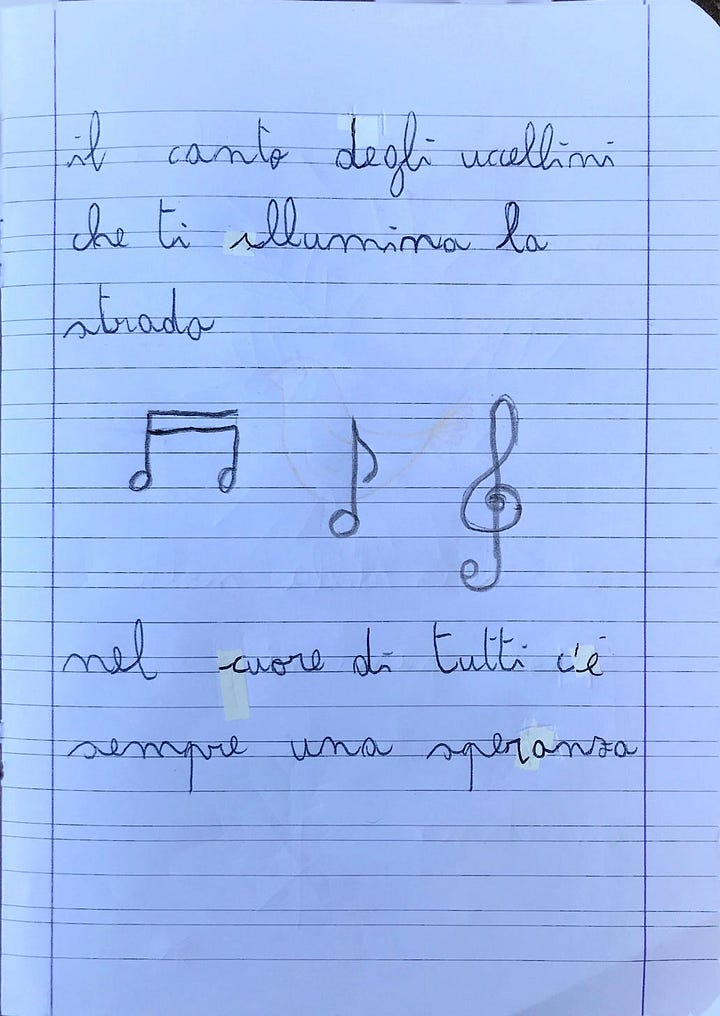 il canto degli uccellini
che ti illumina la
strada
nel cuore di tutti c'è
sempre una speranza